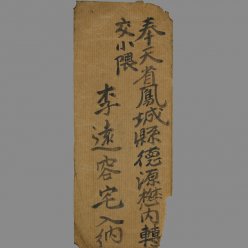 奉天省鳳城縣德源懋內轉
交小隈
李遠容宅入納